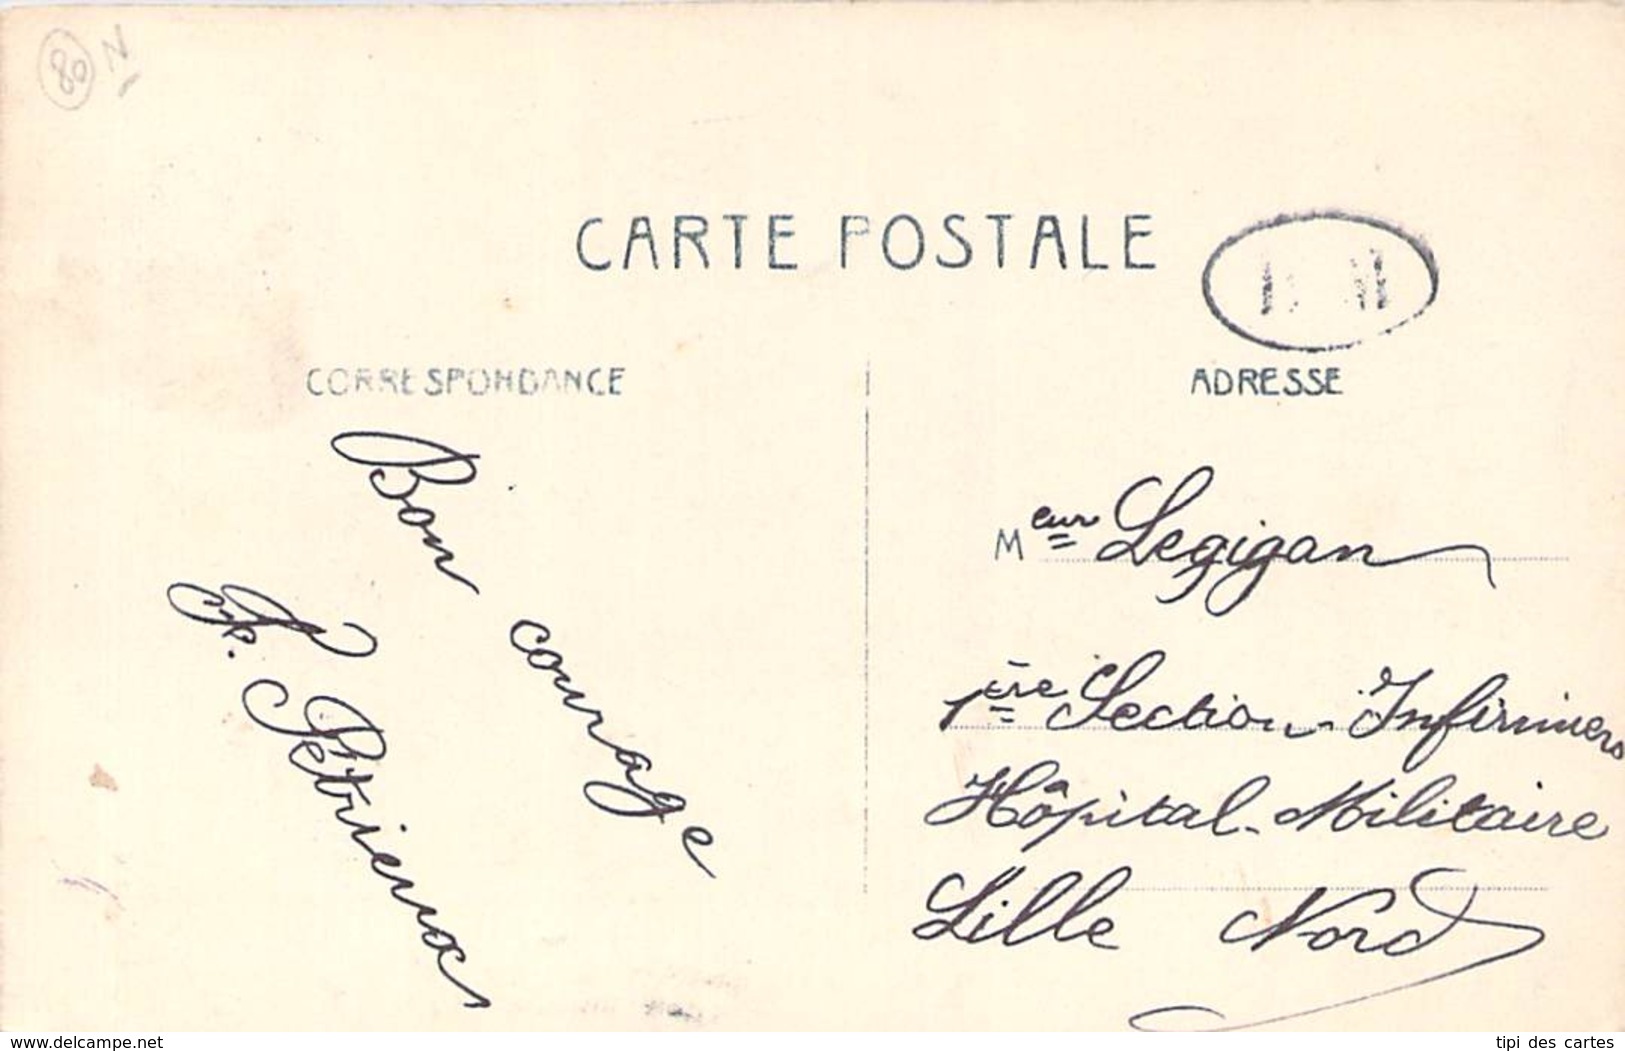 80 N
CARTE POSTALE
CORRESPONDANCE
ADRESSE
Bon courage
Petrieux
Meur Legigan
1ère Section Infirmiers
Hôpital Militaire
Lille Nord
www.delcampe.net
tipi des cartes